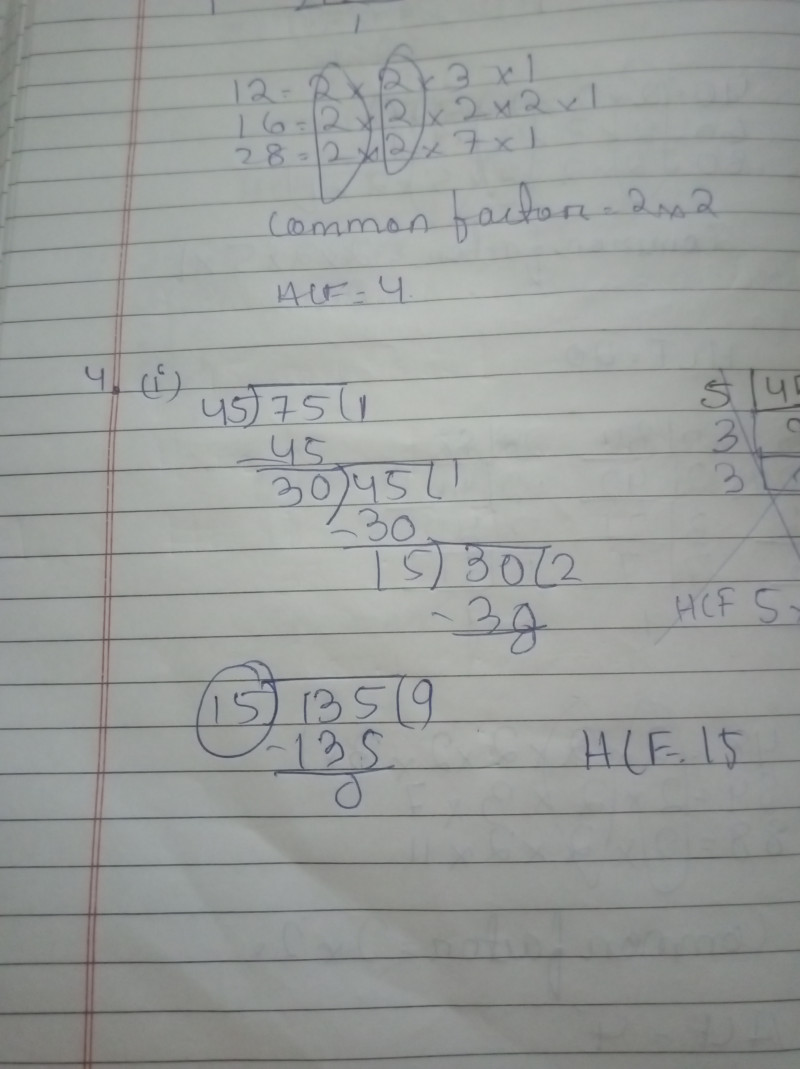 1
12 = 2 × 2 × 3 × 1
16 = 2 × 2 × 2 × 2 × 1
28 = 2 × 2 × 7 × 1
Common factor = 2 × 2
HCF = 4.
4. (i)
45) 75 (1
- 45
30) 45 (1
- 30
15) 30 (2
- 30
0
15) 135 (9
- 135
0
HCF = 15
5 | 45
3
3
HCF 5